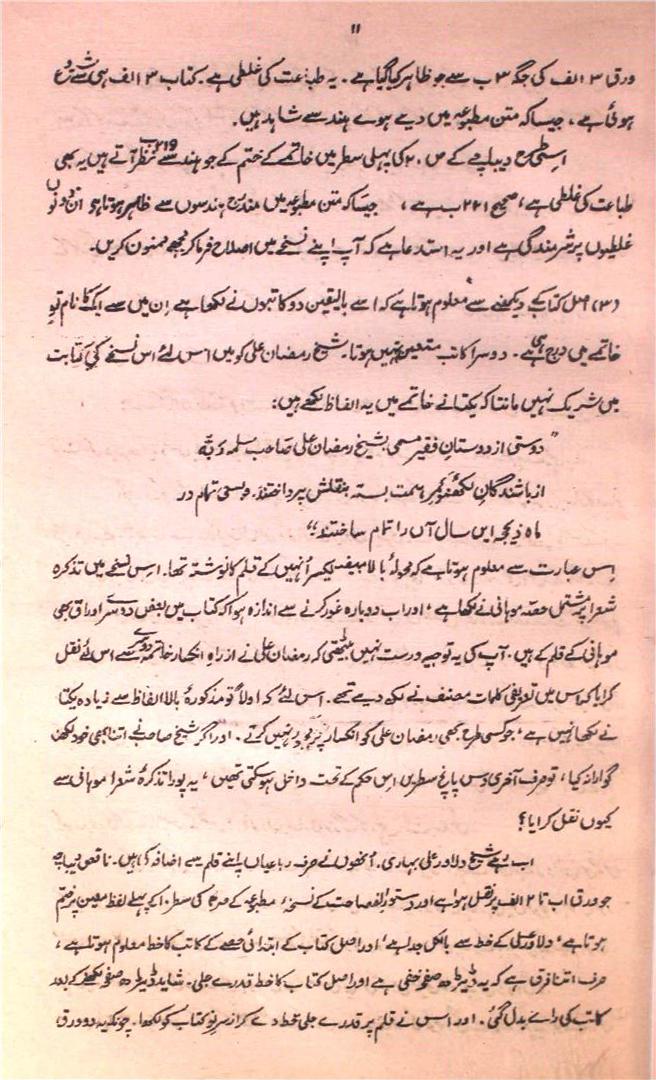 ۱۱
ورق ۳ الف کی جگہ ۳ ب سے جو ظاہر کیا گیا ہے۔ یہ طباعت کی غلطی ہے۔ کتاب ۳ الف ہی سے شروع
ہوئی ہے، جیسا کہ متن مطبوعہ میں دیے ہوے ہندسے شاہد ہیں۔
اسی طرح دیباچے کے ص ۲۰ کی پہلی سطر میں خاتمے کے ختم کے جو ہندسے نظر آتے ہیں یہ بھی
طباعت کی غلطی ہے، صحیح ۲۲۱ ب ہے، جیسا کہ متن مطبوعہ میں مندرج ہندسوں سے ظاہر ہوتا ہے، ان دونوں
غلطیوں پر شرمندگی ہے اور یہ استدعا ہے کہ آپ اپنے نسخے میں اصلاح فرما کر مجھے ممنون کریں۔
(۳) اصل کتاب کے دیکھنے سے معلوم ہوتا ہے کہ اسے بالیقین دو کاتبوں نے لکھا ہے اِن میں سے ایک کا نام تو
خاتمے میں درج ہی ہے۔ دوسرا کاتب متعین نہیں ہوتا۔ شیخ رمضان علی کو میں اس لئے اس نسخے کی کتابت
میں شریک نہیں مانتا کہ یکتا نے خاتمے میں یہ الفاظ لکھے ہیں:
"دوستی از دوستانِ فقیر مسمی بشیخ رمضان علی صاحب سلمہ ربہٗ
از باشندگانِ لکھنؤ کمرِ ہمت بستہ بنقلش پرداختند۔ وبسعی تمام در
ماہ ذیحجہ ایں سال آں را تمام ساختند"
اِس عبارت سے معلوم ہوتا ہے کہ محولۂ بالا مبیضہ یکسر اُنہیں کے قلم کا نوشتہ تھا۔ اِس نسخے میں تذکرہ
شعرا پر مشتمل حصہ موہانی نے لکھا ہے، اور اب دوبارہ غور کرنے سے اندازہ ہوا کہ کتاب میں بعض دوسرے اوراق بھی
موہانی کے قلم کے ہیں۔ آپ کی یہ توجیہ درست نہیں بیٹھتی کہ رمضان علی نے از راہِ انکسار خاتمہ دوسرے سے اس لئے نقل
کرایا کہ اس میں تعریفی کلمات مصنف نے لکھ دیے تھے۔ اس لئے کہ اولاً تو مذکورۂ بالا الفاظ سے زیادہ یکتا
نے لکھا نہیں ہے، جو کسی طرح بھی رمضان علی کو انکسار پر مجبور نہیں کرتے۔ اور اگر شیخ صاحب نے اتنا بھی خود لکھنا
گوارا نہ کیا، تو صرف آخری دس پانچ سطریں اس حکم کے تحت داخل ہو سکتی تھیں، یہ پورا تذکرۂ شعرا موہانی سے
کیوں نقل کرایا؟
اب رہے شیخ دلاور علی بہاری۔ اُنھوں نے صرف رباعیاں اپنے قلم سے اضافہ کی ہیں۔ ناقص دیباچہ
جو ورق ا ب تا ۲ الف پر نقل ہوا ہے اور دستور الفصاحت کے نسخۂ مطبوعہ کے ص کی سطر کے پہلے لفظ معین پر ختم
ہوتا ہے، دلاور علی کے خط سے بالکل جدا ہے، اور اصل کتاب کے ابتدائی حصے کے کاتب کا خط معلوم ہوتا ہے،
صرف اتنا فرق ہے کہ یہ ڈیڑھ صفحہ خفی ہے اور اصل کتاب کا خط قدرے جلی۔ شاید ڈیڑھ صفحہ لکھنے کے بعد
کاتب کی راے بدل گئی۔ اور اس نے قلم پر قدرے جلی قط دے کر از سرِ نو کتاب کو لکھا۔ چونکہ یہ دو ورق،